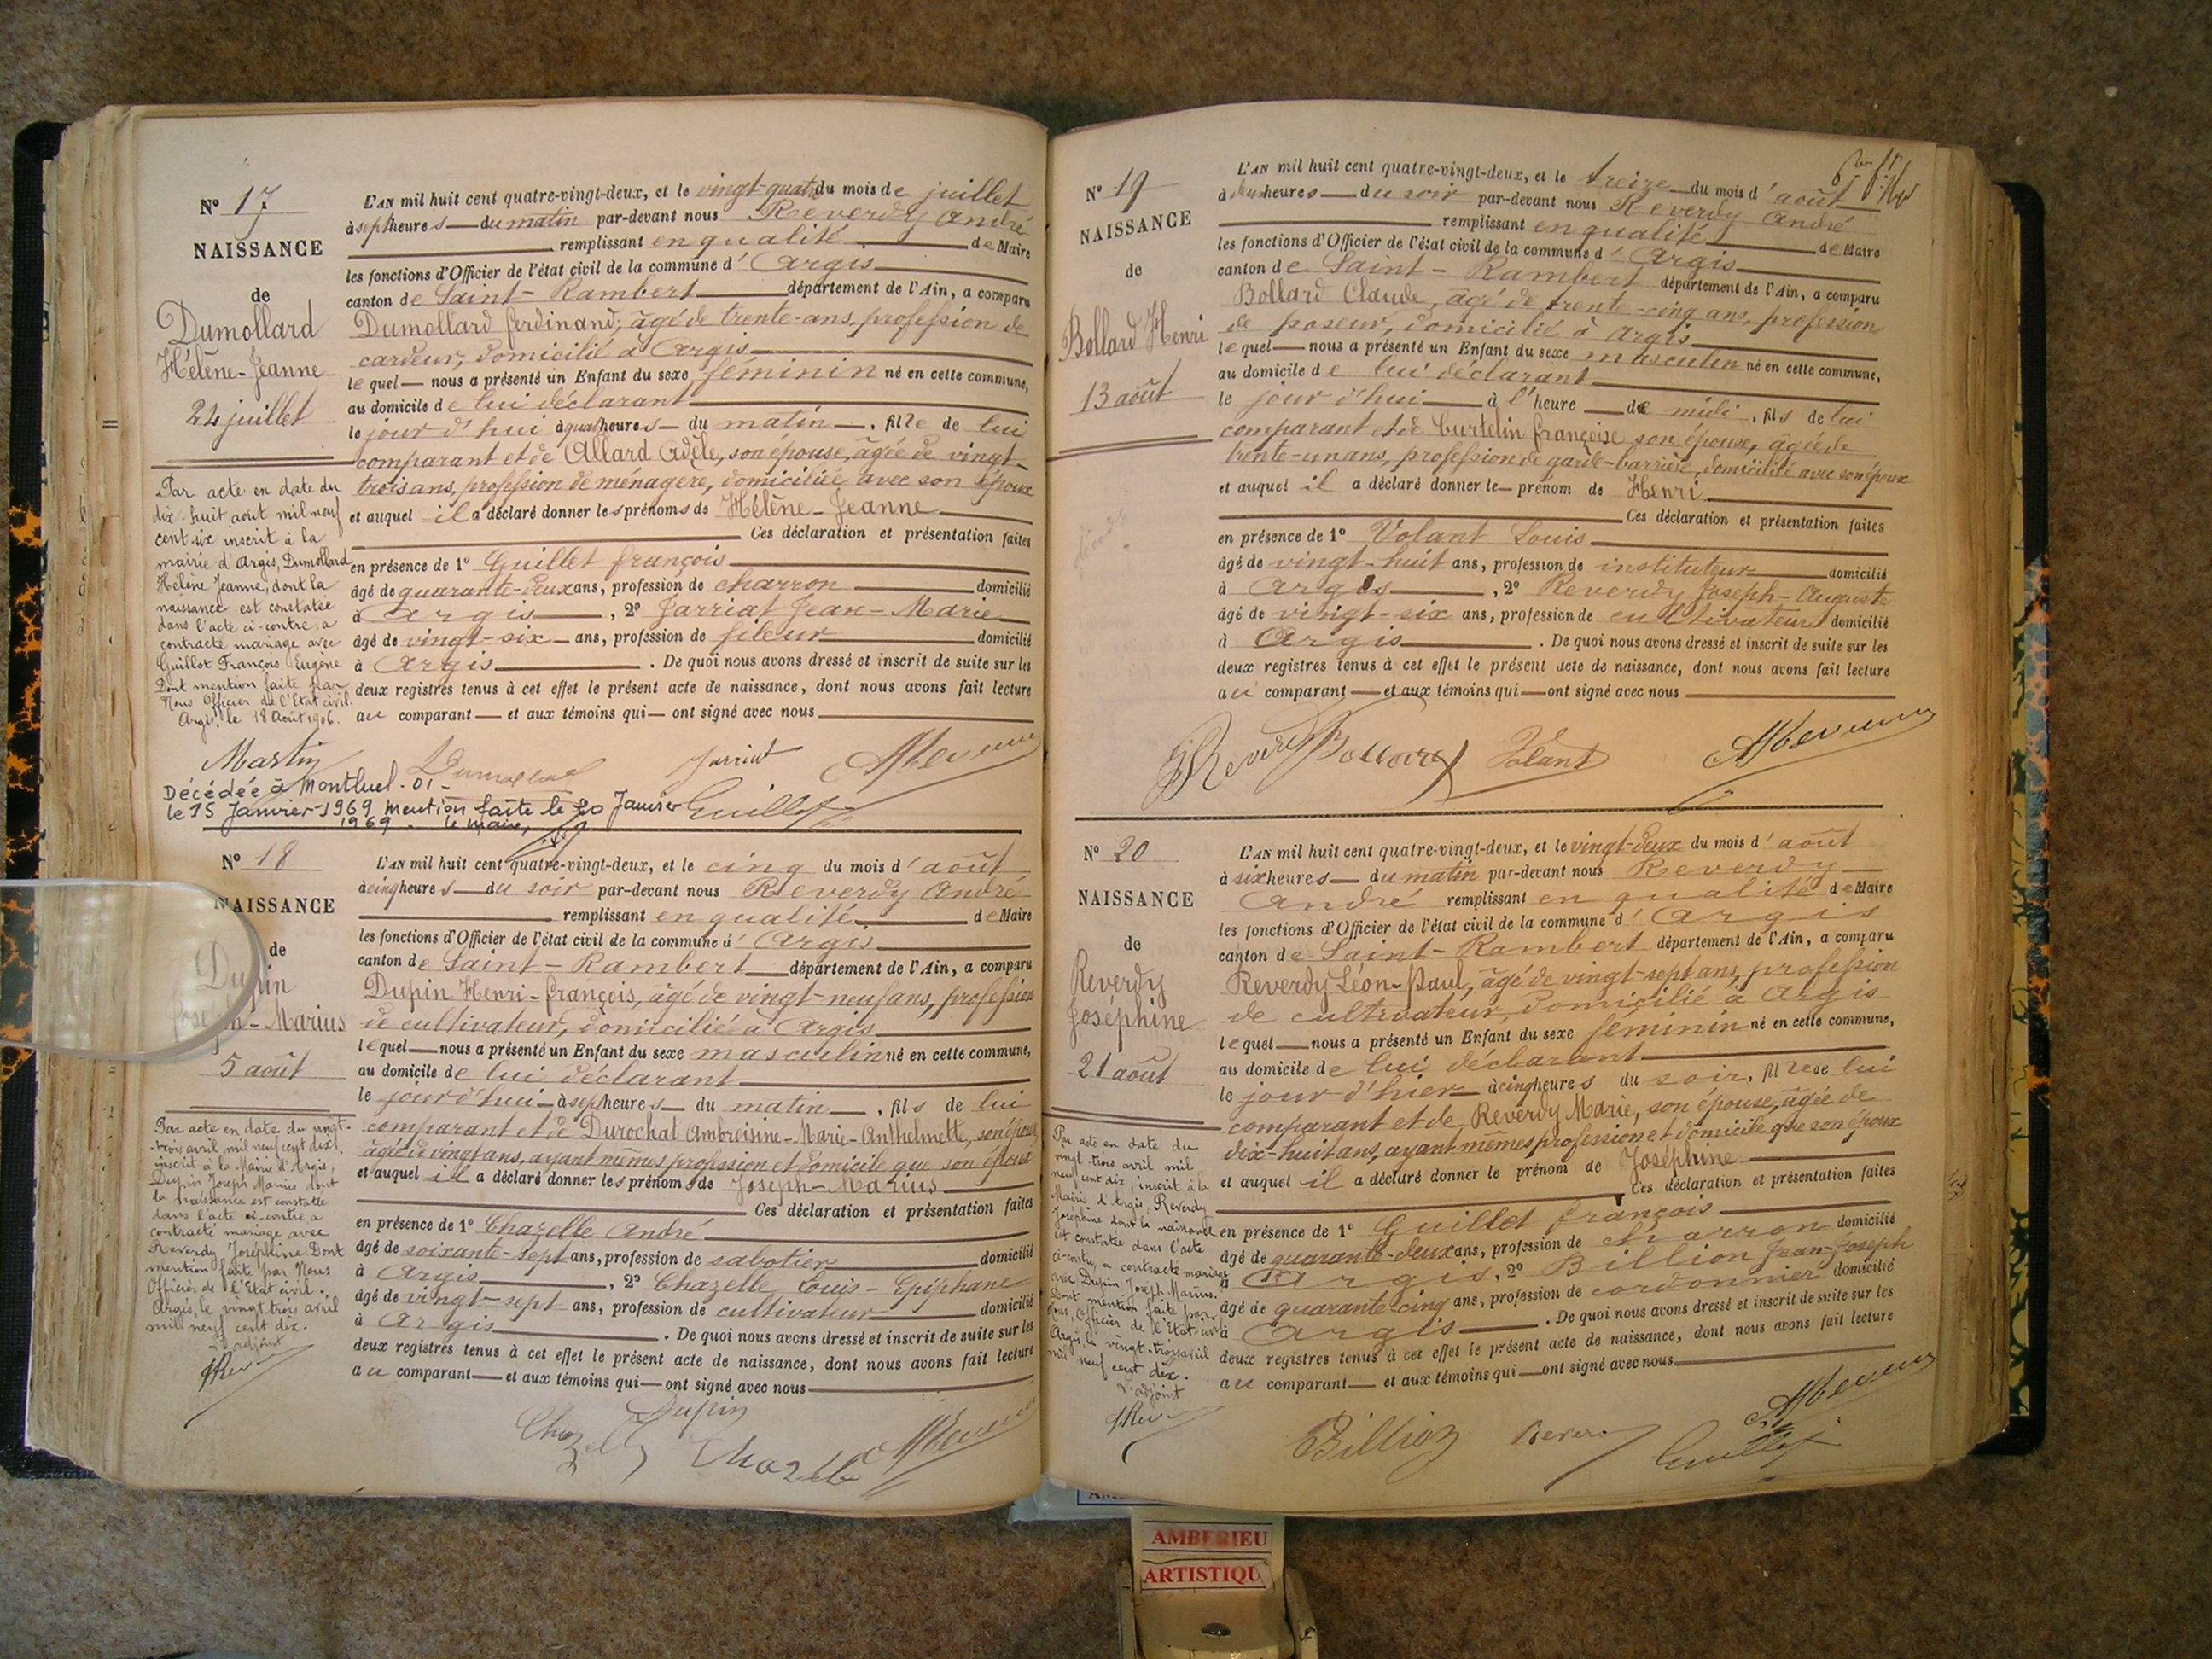 N° 17
NAISSANCE
de
Dumollard
Hélène-Jeanne
24 juillet
L'AN mil huit cent quatre-vingt-deux, et le vingt-quatre du mois de juillet
à sept heures du matin par-devant nous Reverdy André
remplissant en qualité de Maire
les fonctions d'Officier de l'état civil de la commune d'Argis
canton de Saint-Rambert département de l'Ain, a comparu
Dumollard ferdinand, âgé de trente-ans, profession de
cardeur, domicilié à Argis
lequel nous a présenté un Enfant du sexe féminin né en cette commune,
au domicile de lui déclarant
le jour d'hui à quatre heures du matin, fille de lui
comparant et de Allard Adèle, son épouse, âgée de vingt-
trois ans, profession de ménagère, domiciliée avec son époux
et auquel il a déclaré donner les prénoms de Hélène-Jeanne
Ces déclaration et présentation faites
en présence de 1° Guillet françois
âgé de quarante-deux ans, profession de charron domicilié
à Argis, 2° Jarriat Jean-Marie
âgé de vingt-six ans, profession de fileur domicilié
à Argis. De quoi nous avons dressé et inscrit de suite sur les
deux registres tenus à cet effet le présent acte de naissance, dont nous avons fait lecture
au comparant et aux témoins qui ont signé avec nous
Par acte en date du
dix-huit aout mil neuf
cent six inscrit à la
mairie d'Argis, Dumollard
Hélène Jeanne, dont la
naissance est constatée
dans l'acte ci-contre a
contracté mariage avec
Guillot François Eugène
Dont mention faite par
Nous Officier de l'Etat civil.
Argis le 18 Août 1906.
Martin
Dumollard
Jarriat
Guillet
Décédée à Montluel-01-
le 15 Janvier 1969 mention faite le 20 Janvier
1969. le maire,
N° 18
NAISSANCE
de
Dupin
Joseph-Marius
5 août
L'AN mil huit cent quatre-vingt-deux, et le cinq du mois d'août
à cinq heures du soir par-devant nous Reverdy André
remplissant en qualité de Maire
les fonctions d'Officier de l'état civil de la commune d'Argis
canton de Saint-Rambert département de l'Ain, a comparu
Dupin Henri-françois, âgé de vingt-neuf ans, profession
de cultivateur, domicilié à Argis
lequel nous a présenté un Enfant du sexe masculin né en cette commune,
au domicile de lui déclarant
le jour d'hui à sept heures du matin, fils de lui
comparant et de Durochat Ambroisine-Marie-Anthelmette, son épouse
âgée de vingt ans, ayant mêmes profession et domicile que son époux
et auquel il a déclaré donner les prénoms de Joseph-Marius
Ces déclaration et présentation faites
en présence de 1° Chazelle André
âgé de soixante-sept ans, profession de sabotier domicilié
à Argis, 2° Chazelle Louis-Epiphane
âgé de vingt-sept ans, profession de cultivateur domicilié
à Argis. De quoi nous avons dressé et inscrit de suite sur les
deux registres tenus à cet effet le présent acte de naissance, dont nous avons fait lecture
au comparant et aux témoins qui ont signé avec nous
Par acte en date du vingt-
-trois avril mil neuf cent dix,
inscrit à la Mairie d'Argis,
Dupin Joseph Marius dont
la naissance est constatée
dans l'acte ci-contre a
contracté mariage avec
Reverdy Joséphine Dont
mention faite par Nous
Officier de l'Etat civil.
Argis, le vingt trois avril
mil neuf cent dix.
L'adjoint
Dupin
Chazelle
Chazelle
N° 19
NAISSANCE
de
Bollard Henri
13 août
L'AN mil huit cent quatre-vingt-deux, et le treize du mois d'août
à deux heures du soir par-devant nous Reverdy André
remplissant en qualité de Maire
les fonctions d'Officier de l'état civil de la commune d'Argis
canton de Saint-Rambert département de l'Ain, a comparu
Bollard Claude, âgé de trente-cinq ans, profession
de poseur, domicilié à Argis
lequel nous a présenté un Enfant du sexe masculin né en cette commune,
au domicile de lui déclarant
le jour d'hui à l'heure de midi, fils de lui
comparant et de Curtelin françoise son épouse, âgée de
trente-un ans, profession de garde-barrière, domicilié avec son époux
et auquel il a déclaré donner le prénom de Henri
Ces déclaration et présentation faites
en présence de 1° Volant Louis
âgé de vingt-huit ans, profession de instituteur domicilié
à Argis, 2° Reverdy Joseph-Auguste
âgé de vingt-six ans, profession de cultivateur domicilié
à Argis. De quoi nous avons dressé et inscrit de suite sur les
deux registres tenus à cet effet le présent acte de naissance, dont nous avons fait lecture
au comparant et aux témoins qui ont signé avec nous
Bollard
Volant
N° 20
NAISSANCE
de
Reverdy
Joséphine
21 août
L'AN mil huit cent quatre-vingt-deux, et le vingt-deux du mois d'août
à six heures du matin par-devant nous Reverdy
André remplissant en qualité de Maire
les fonctions d'Officier de l'état civil de la commune d'Argis
canton de Saint-Rambert département de l'Ain, a comparu
Reverdy Léon-Paul, âgé de vingt-sept ans, profession
de cultivateur, domicilié à Argis
lequel nous a présenté un Enfant du sexe féminin né en cette commune,
au domicile de lui déclarant
le jour d'hier à cinq heures du soir, fille de lui
comparant et de Reverdy Marie, son épouse, âgée de
dix-huit ans, ayant mêmes profession et domicile que son époux
et auquel il a déclaré donner le prénom de Joséphine
Ces déclaration et présentation faites
en présence de 1° Guillet françois
âgé de quarante-deux ans, profession de charron domicilié
à Argis, 2° Billion Jean-Joseph
âgé de quarante-cinq ans, profession de cordonnier domicilié
à Argis. De quoi nous avons dressé et inscrit de suite sur les
deux registres tenus à cet effet le présent acte de naissance, dont nous avons fait lecture
au comparant et aux témoins qui ont signé avec nous
Par acte en date du
vingt-trois avril mil
neuf cent dix, inscrit à la
Mairie d'Argis, Reverdy
Joséphine dont la naissance
est constatée dans l'acte
ci-contre, a contracté mariage
avec Dupin Joseph Marius.
Dont mention faite par
Nous, Officier de l'Etat-civil
Argis, le vingt-trois avril
mil neuf cent dix.
L'adjoint
Billion
Guillet
AMBERIEU
ARTISTIQU